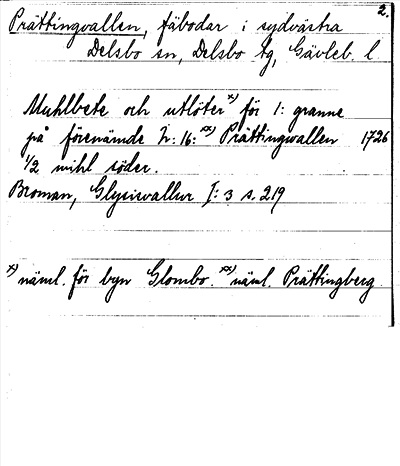 2.
Prättingvallen, fäbodar i sydvästra
Delsbo sn, Delsbo tg, Gävleb. l
Muhlbete och utlöter x) för 1: granne
på förenämde N: 16: xx) Prättingwallen 1726
1/2 mihl söder.
Broman, Glysisvallur I: 3 s. 219
x) näml. för byn Glombo. xx) näml. Prättingberg.